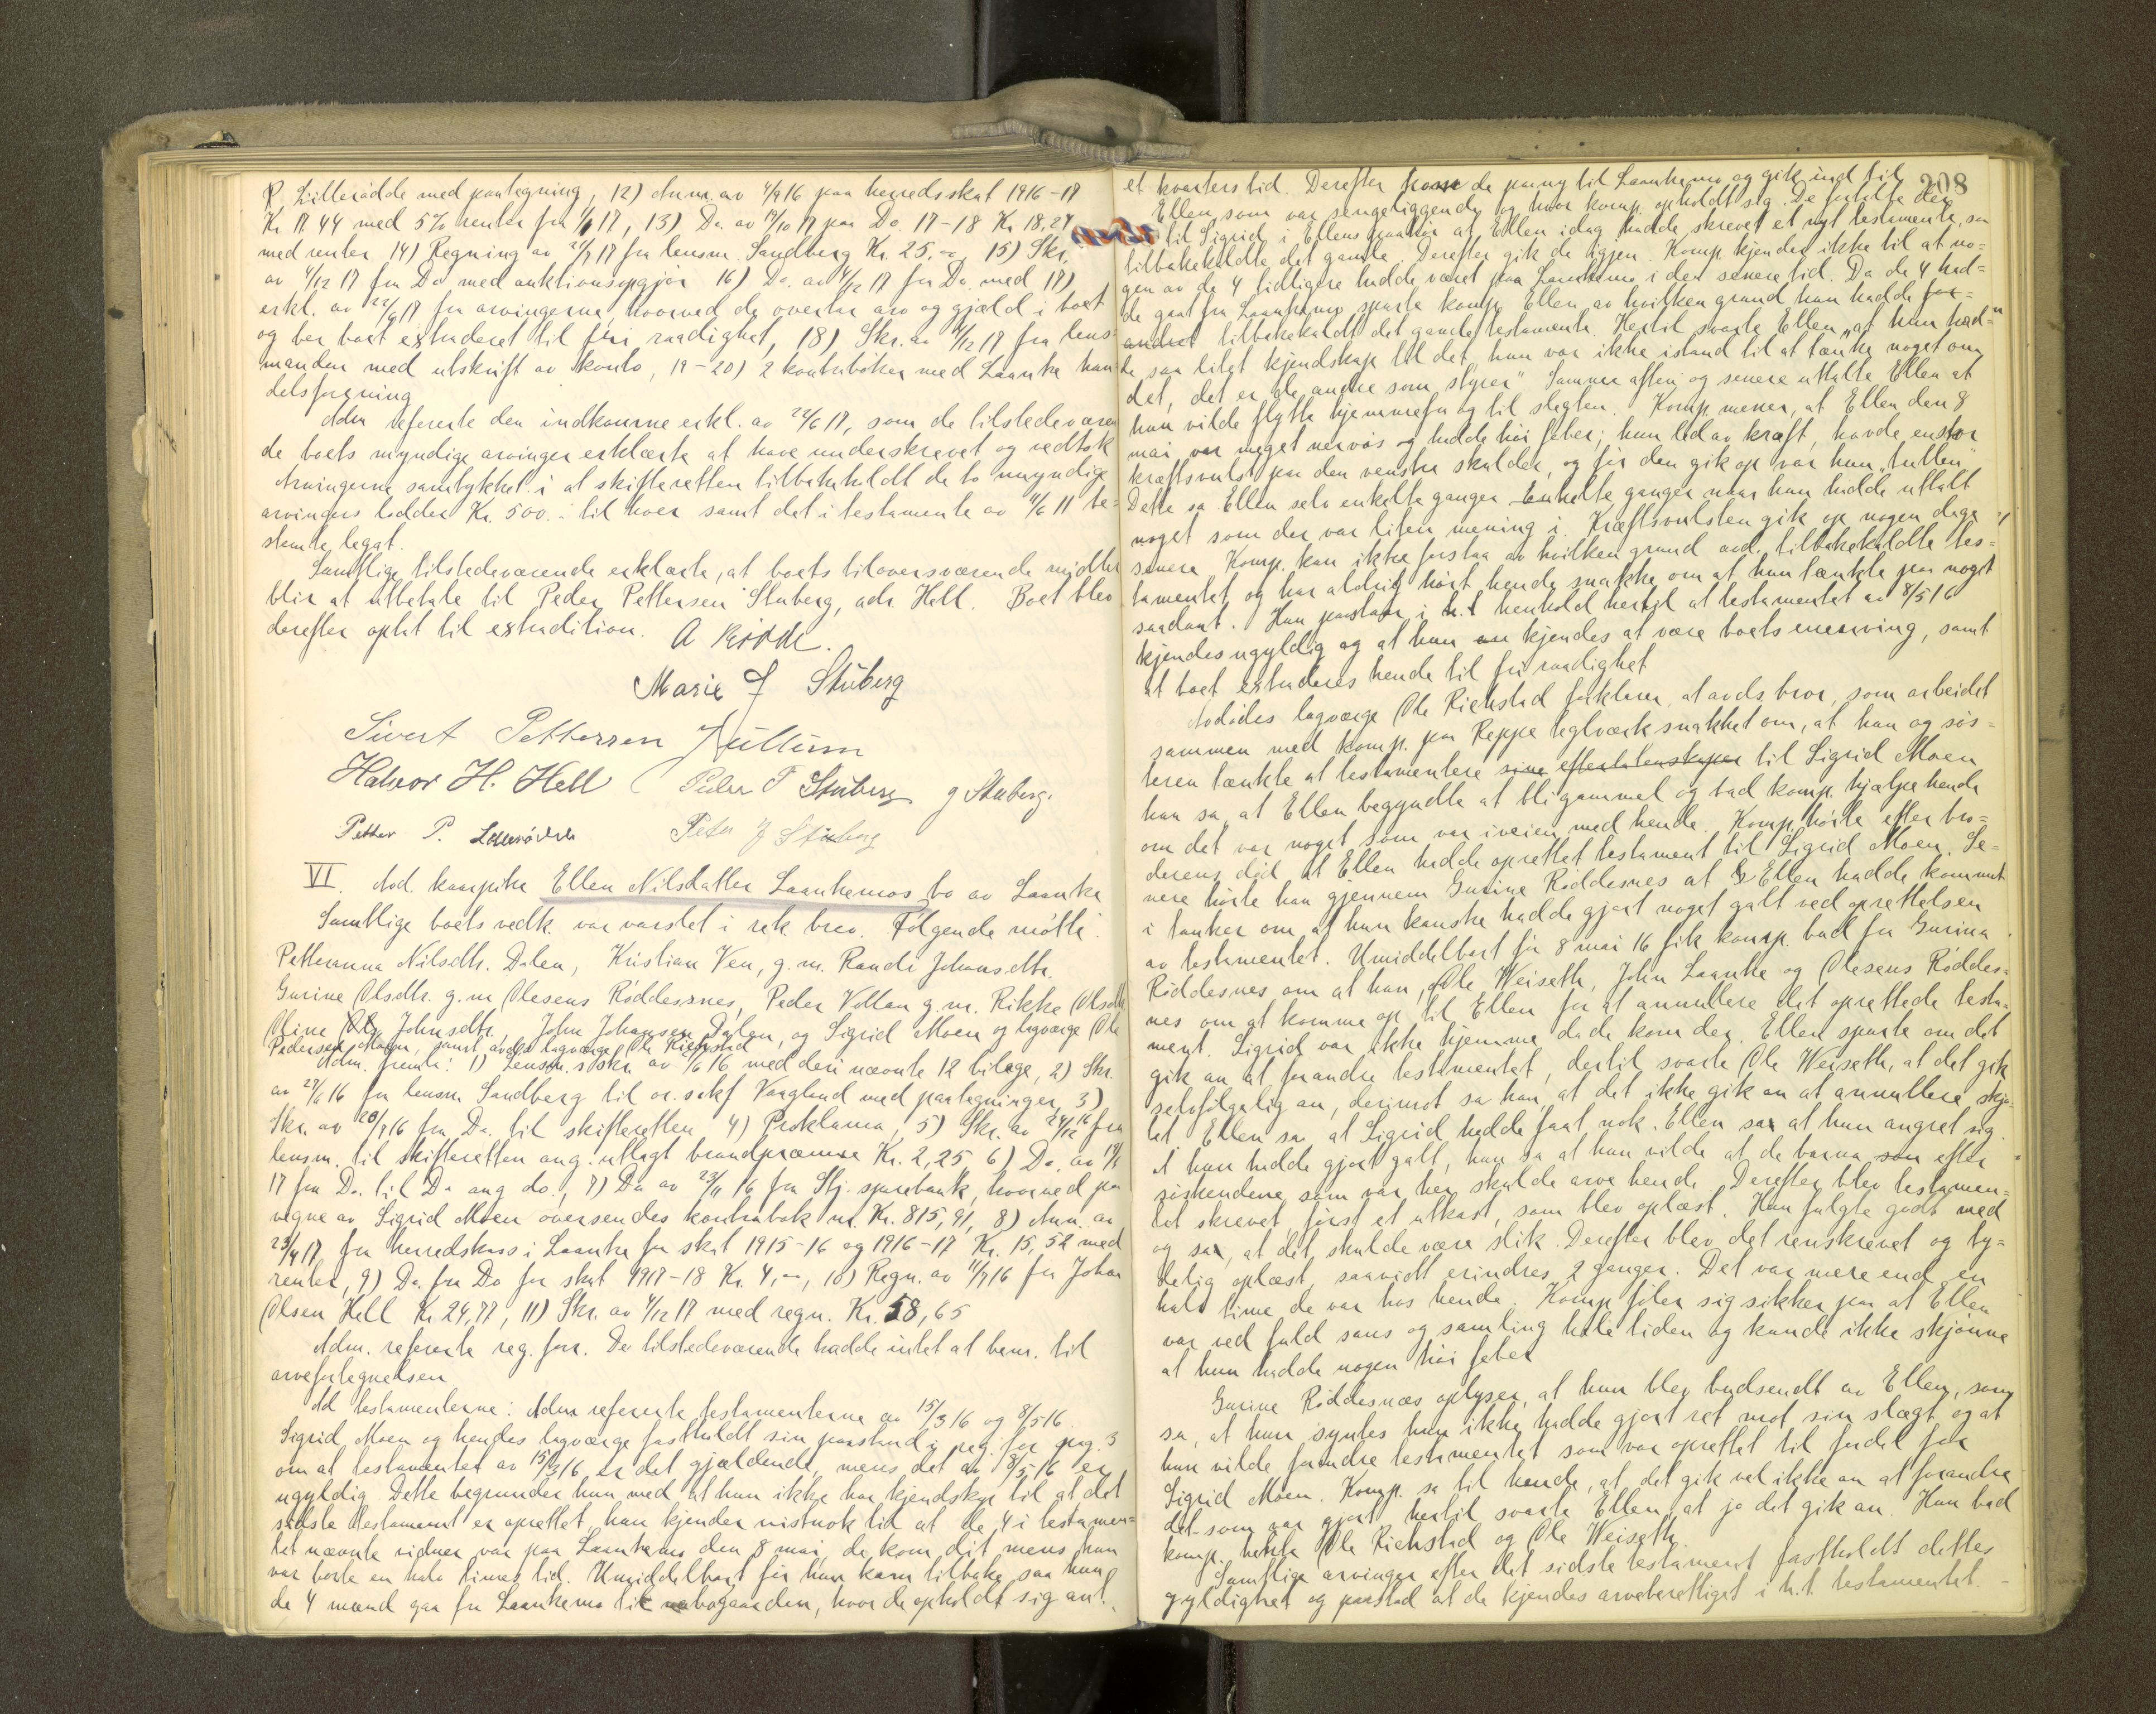 P. Litlerødde med paategning, 12) Anm. av 4/9 16 paa herredsskat 1916-17
Kr. 17.44 med 5% renter fra 17, 13) Do. av 19/10 17 paa Do. 17-18 Kr. 18,27
med renter 14) Regning av 24/7 17 fra lensm. Sandberg Kr. 25.- 15) Skr.
av 4/12 17 fra Do med auktionsopgjør 16) Do. av 4/12 17 fra Do. med 17)
erkl. av 22/6 17 fra arvingerne, hvorved de overtar arv og gjæld i boet
og ber boet extraderet til fri raadighet, 18) Skr. av 4/12 17 fra lens-
manden med utskrift av konto, 19-20) 2 kontrabøker med Laanke han-
delsforening
Adm refererte den indkomne erkl. av 22/6 17, som de tilstedeværen
de boets myndige arvinger erklærte at have underskrevet og vedtok
Arvingerne samtykket i at skifteretten tilbakeholdt de to umyndige
arvingers lodder Kr. 500.- til hver samt det i testamente av 4/6 11 be-
stemte legat.
Samtlige tilstedeværende erklærte, at boets tiloversværende midler
blir at utbetale til Peder Pettersen Stuberg, adr. Hell. Boet blev
derefter optat til extradition. A Rødde.
Marie J Stuberg
Sivert Pettersen Kullum
Halvor H. Hell Peder P Stuberg g Stuberg.
Petter P. Litlerødde Peter J Stuberg
VI. Avd. kaarpike Ellen Nilsdatter Laankemos bo av Laanke
Samtlige boets vedk. var varslet i rek. brev. Følgende møtte:
Petteranna Nilsdtr. Dalen, Kristian Ven, g. m. Randi Johansdtr.
Gurine Olsdtr. g. m. Olesens Røddesnes, Peder Vollan g. m. Rikke Olsdtr
Oline Johnsdtr., John Johansen Dalen, og Sigrid Moen og lagværge Ole
Pedersen Moen, samt avdes lagværge Ole Richstad
Adm. freml: 1) Lensm.s skr. av 16 med deri nævnte 12 bilage, 2) Skr.
av 27/6 16 fra lensm. Sandberg til or. sakf Vaagland med paategninger, 3)
Skr. av 20/9 16 fra Do. til skifteretten 4) Proklama, 5) Skr. av 24/12 16 fra
lensm. til skifteretten ang. utlagt brandpræmie Kr. 2,25 6) Do. av
17 fra Do. til Do ang do., 7) Do av 23/11 16 fra Stj. sparebank, hvorved paa
vegne av Sigrid Moen oversendes kontrabok m. Kr. 815,91, 8) Anm. av
23/4 17 fra herredskass i Laanke for skat 1915-16 og 1916-17 Kr. 15,52 med
renter, 9) Do. fra Do for skat 1917-18 Kr. 4,-, 10) Regn. av 11/7 16 fra Johan
Olsen Hell Kr. 24,77, 11) Skr. av 4/12 17 med regn. Kr. 58,65
Adm. refererte reg. forr. De tilstedeværende hadde intet at bem. til
arvefortegnelsen
Ad testamenterne: Adm refererte testamenterne av 15/3 16 og 8/5 16.
Sigrid Moen og hendes lagværge fastholdt sin paastand i reg. for. pag. 3
om at testamentet av 15/3 16 er det gjældende, mens det av 8/5 16 er
ugyldig. Dette begrunder hun med at hun ikke har kjendskap til at det
sidste testament er oprettet, hun kjender vistnok til at de 4 i testamen-
tet nævnte vidner var paa Laankemo den 8 mai, de kom dit mens hun
var borte en halv times tid. Umiddelbart før hun kom tilbake saa hun
de 4 mænd gaa fra Laankemo til nabogaarden, hvor de opholdt sig omt.
208
et kvarters tid. Derefter kom de paany til Laankemo og gik ind til
Ellen, som var sengeliggende og hvor komp. opholdt sig. De fortalte der
til Sigrid i Ellens paahør at Ellen idag hadde skrevet et nyt testamente, som
tilbakekaldte det gamle. Derefter gik de igjen. Komp. kjender ikke til at no-
gen av de 4 tidligere hadde været paa Laankemo i den senere tid. Da de 4 had-
de gaat fra Laankemo spurte komp. Ellen av hvilken grund hun hadde for-
andret tilbakekaldt det gamle testamente. Hertil svarte Ellen "at hun had-
de saa litet kjendskap til det, hun var ikke istand til at tænke noget om
det, det er de andre som styrer" Samme aften og senere uttalte Ellen at
hun vilde flytte hjemmefra og til slegten. Komp. mener, at Ellen den 8
mai var meget nervøs og hadde høi feber; hun led av kræft, havde en stor
kræftsvulst paa den venstre skulder, og før den gik op var hun "tullen"
Dette sa Ellen selv enkelte ganger. Enkelte ganger naar hun hadde uttalt
noget som der var liten mening i. Kræftsvulsten gik op nogen dage
senere. Komp. kan ikke forstaa av hvilken grund avd. tilbakekaldte tes-
tamentet og har aldrig hørt hende snakke om at hun tænkte paa noget
saadant. Hun paastaar i henhold hertil at testamentet av 8/5 16
kjendes ugyldig og at hun kjendes at være boets enearving, samt
at boet extraderes hende til fri raadighet
Avdødes lagværge Ole Richstad forklarer, at avds. bror, som arbeidet
sammen med komp. paa Reppe teglverk snakket om, at han og søs-
teren tænkte at testamentere sine efterlatenskaper til Sigrid Moen
han sa, at Ellen begyndte at bli gammel og bad komp. hjælpe hende
om det var noget som var iveien med hende. Komp. hørte efter bro-
derens død at Ellen hadde oprettet testament til Sigrid Moen. Se-
nere hørte han gjennem Gurine Røddesnes at Ellen hadde kommet
i tanker om, at hun kanske hadde gjort noget galt ved oprettelsen
av testamentet. Umiddelbart før 8 mai 16 fik komp. bud fra Gurine
Røddesnes om at han, Ole Weiseth, John Laanke og Olesens Røddes-
nes om at komme op til Ellen for at annullere det oprettede testa-
ment. Sigrid var ikke hjemme da de kom der. Ellen spurte om det
gik an at forandre testamentet, dertil svarte Ole Weiseth, at det gik
selvfølgelig an, derimot sa han, at det ikke gik an at annullere skjø-
tet. Ellen sa, at Sigrid hadde faat nok. Ellen sa at hun angret sig.
At hun hadde gjort galt, hun sa at hun vilde at de barna efter
søskendene, som var her skulde arve hende. Derefter blev testamen-
tet skrevet, først et utkast, som blev oplæst. Hun fulgte godt med
og sa, at det skulde være slik. Derefter blev det renskrevet og ty-
delig oplæst, saavidt erindres 2 ganger. Det var mere end en
halv time de var hos hende. Komp. føler sig sikker paa at Ellen
var ved fuld sans og samling hele tiden og kunde ikke skjønne
at hun hadde nogen høi feber
Gurine Røddesnæs oplyser, at hun blev budsendt av Ellen, som
sa, at hun syntes hun ikke hadde gjort ret mot sin slægt og at
hun vilde forandre testamentet som var oprettet til fordel for
Sigrid Moen. Komp. sa til hende, at det gik vel ikke an at forandre
det som var gjort hertil svarte Ellen, at jo det gik an. Hun bad
komp. hente Ole Richstad og Ole Weiseth.
Samtlige arvinger efter det sidste testament fastholdt dettes
gyldighet og paastod at de kjendes arveberettiget i h.t. testamentet.-